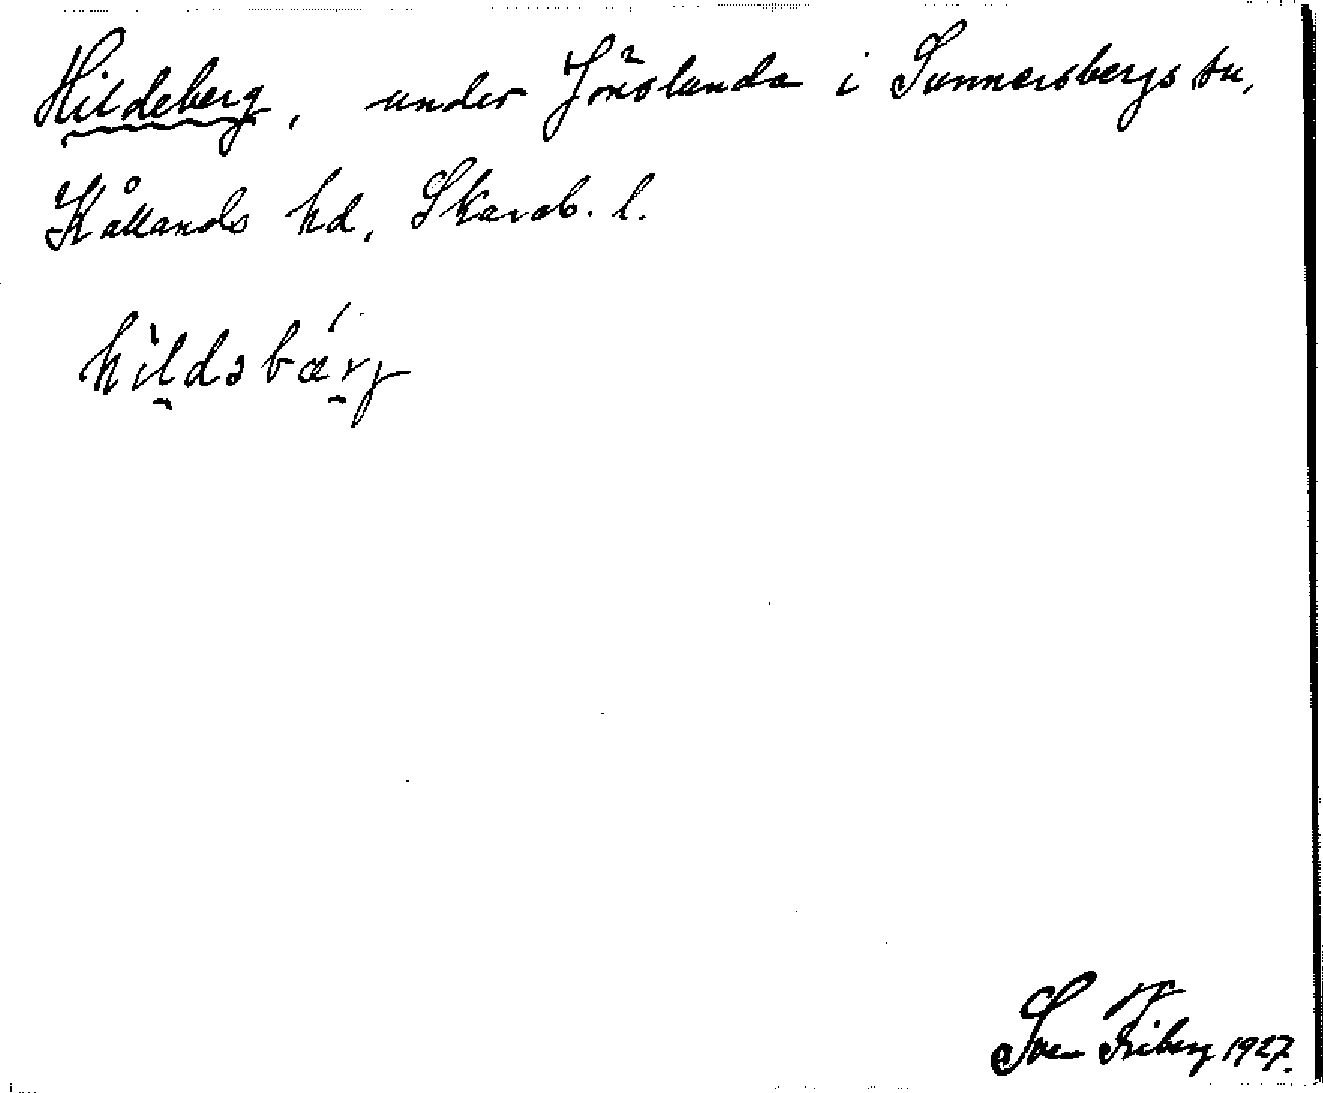 Hildeberg, under Jönslunda i Sunnersbergs sn,
Kållands hd, Skarab. l.
hìldəbærj
Sven Friberg 1927.